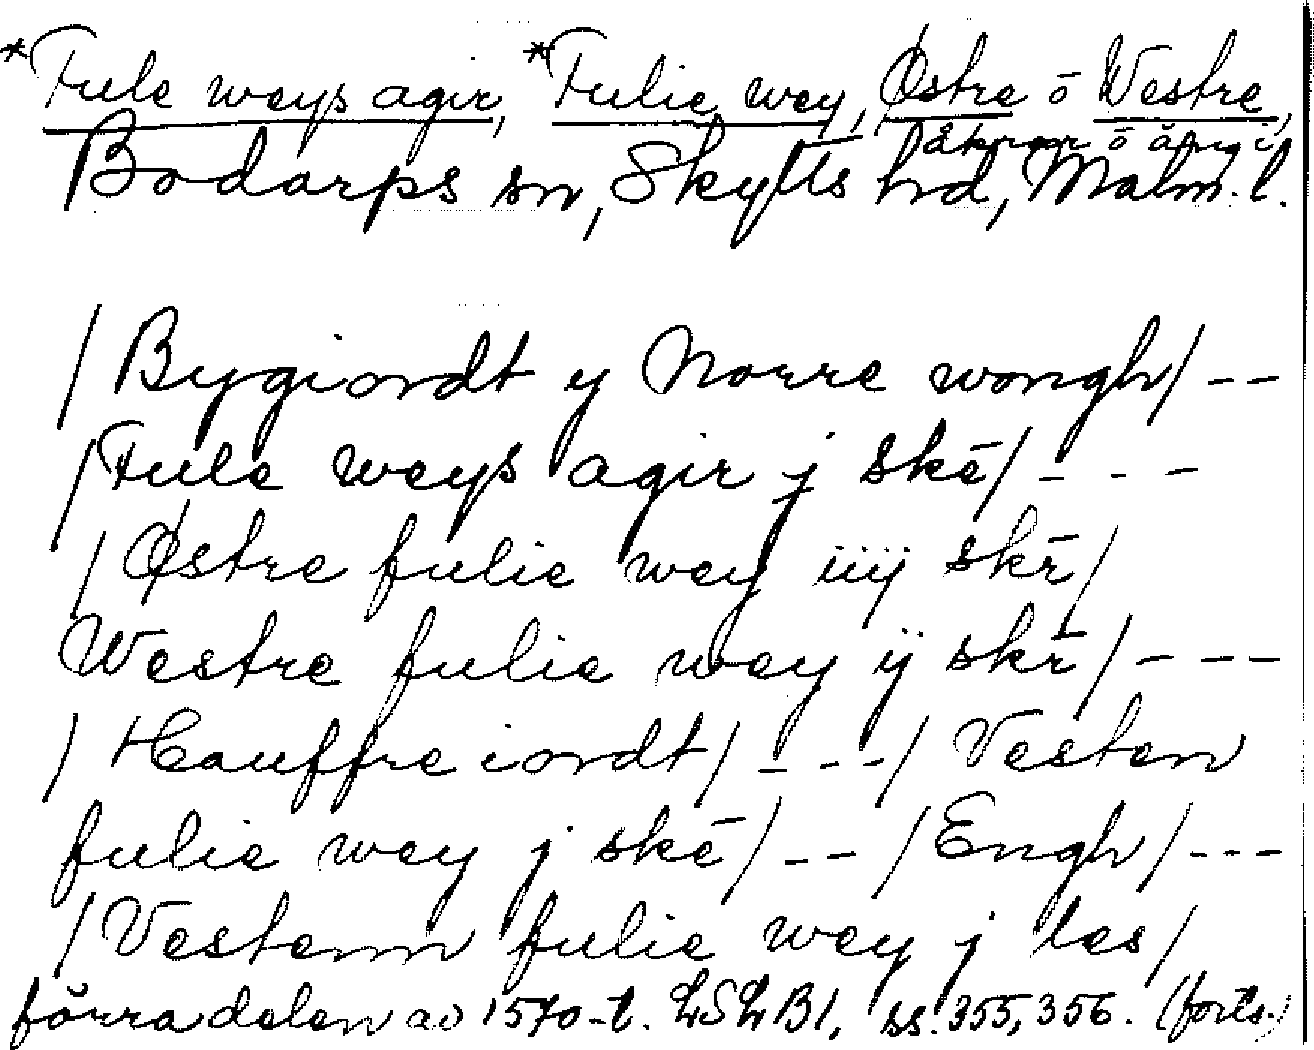 *Fule weys agir, *Fulie wey, Østre ō Westre,
åkrar ō äng i
Bodarps sn, Skytts hd, Malm. l.
/ Bygiordt y Norre wongh/ - -
/ Fule weys agir j skē/ - - -
/ Østre fulie wey iiij skr̄/
Westre fulie wey ij skr̄/ - - -
/ Hauffre iordt/ - - -/ Vesten
fulie wey j skē/ - - /Engh/ - - -
/ Vestenn fulie wey j les/
förra delen av 1570-t. LSLB1, ss. 355, 356. (forts.)